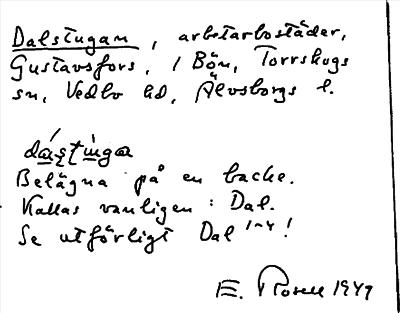 Dalstugan, arbetarbostäder,
Gustavsfors, i Bön, Torrskogs
sn, Vedbo hd, Älvsborgs l.
dástinga
Belägna på en backe.
Kallas vanligen: Dal.
Se utförligt Dal 1-4!
E. Rosell 1949